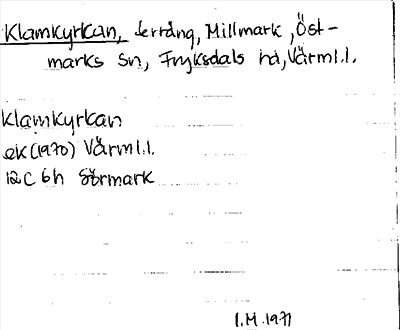 Klamkyrkan, terräng, Millmark, Öst-
marks sn, Fryksdals hd, Värml.l.
Klamkyrkan
ek (1970) Värml.l.
12C 6h Sörmark
I.M. 1971